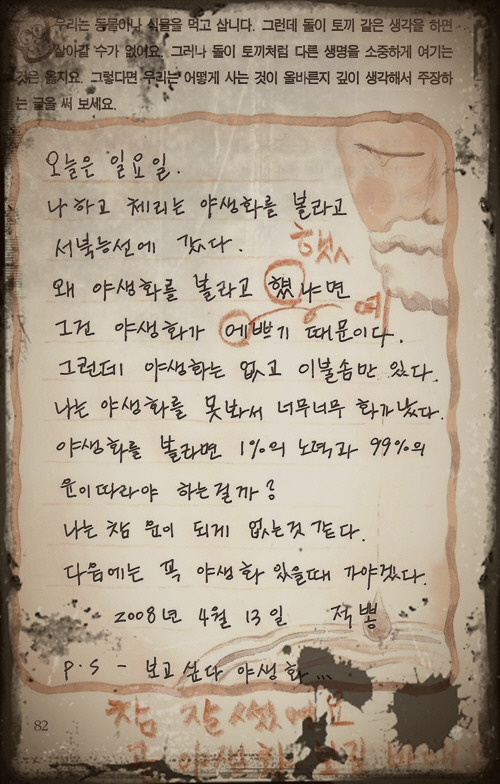 우리는 동물이나 식물을 먹고 삽니다. 그런데 돌이 토끼 같은 생각을 하면
살아갈 수가 없어요. 그러나 돌이 토끼처럼 다른 생명을 소중하게 여기는
것은 옳지요. 그렇다면 우리는 어떻게 사는 것이 올바른지 깊이 생각해서 주장하
는 글을 써 보세요.
오늘은 일요일.
나 하고 체리는 야생화를 볼라고
서북능선에 갔다.
햇
왜 야생화를 볼라고 했냐면
예
그건 야생화가 에쁘기 때문이다.
그런데 야생화는 없고 이불솜만 있다.
나는 야생화를 못봐서 너무너무 화가났다.
야생화를 볼라면 1%의 노력과 99%의
운이따라야 하는걸까?
나는 참 운이 되게 없는것 같다.
다음에는 꼭 야생화 있을때 가야겠다.
2008년 4월 13일 적뽕
P.S - 보고 싶다 야생화...
참 잘 썼어요
82
야생화